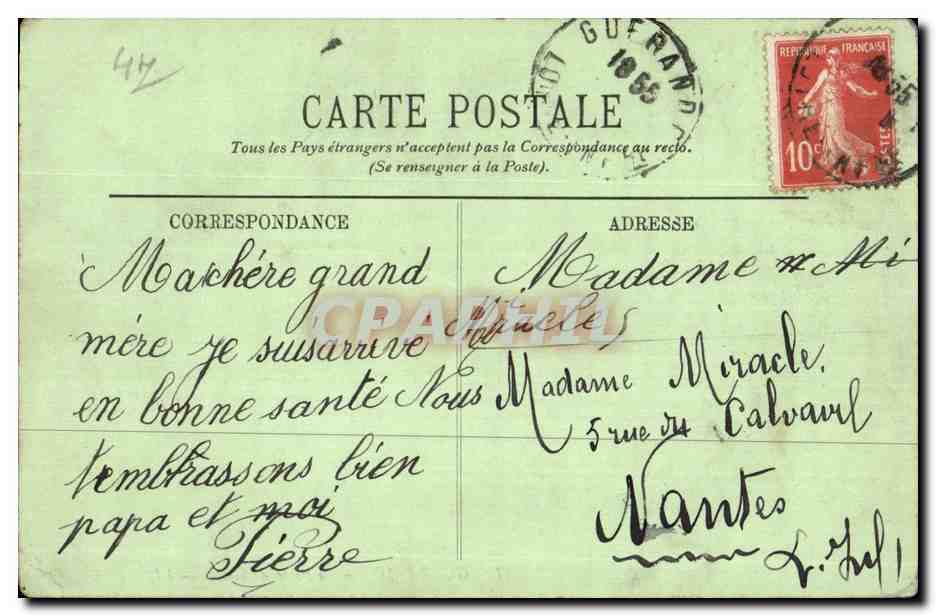 44
GUERANDE
18 55
LOI
REPUBLIQUE FRANÇAISE
10c
POSTES
CARTE POSTALE
Tous les Pays étrangers n'acceptent pas la Correspondance au recto.
(Se renseigner à la Poste).
CORRESPONDANCE
Ma chére grand
mére je suis arrivé
en bonne santé Nous
t'embrassons bien
papa et moi
Pierre
ADRESSE
Madame Mi
Miracle
Madame Miracle,
5 rue du Calvaire
Nantes
L. Inf
CPARHIL